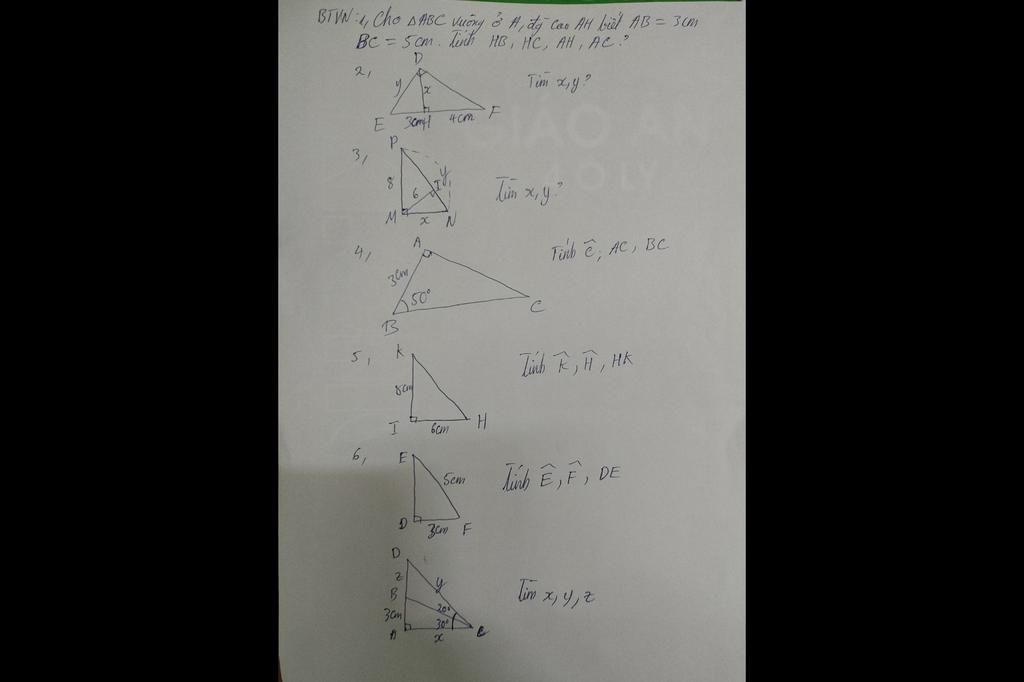 BTVN: 1, Cho △ABC vuông ở A, đg cao AH biết AB = 3cm
BC = 5cm. Tính HB, HC, AH, AC?
2,
D
y
x
E
3cm
H
4cm
F
Tìm x, y?
3,
P
8
6
I
y
M
x
N
Tìm x, y?
4,
A
3cm
50°
B
C
Tính Ĉ, AC, BC
5,
K
8cm
I
6cm
H
Tính K̂, Ĥ, HK
6,
E
5cm
D
3cm
F
Tính Ê, F̂, DE
D
z
y
B
3cm
20°
30°
A
x
C
Tìm x, y, z
GIÁO ÁN